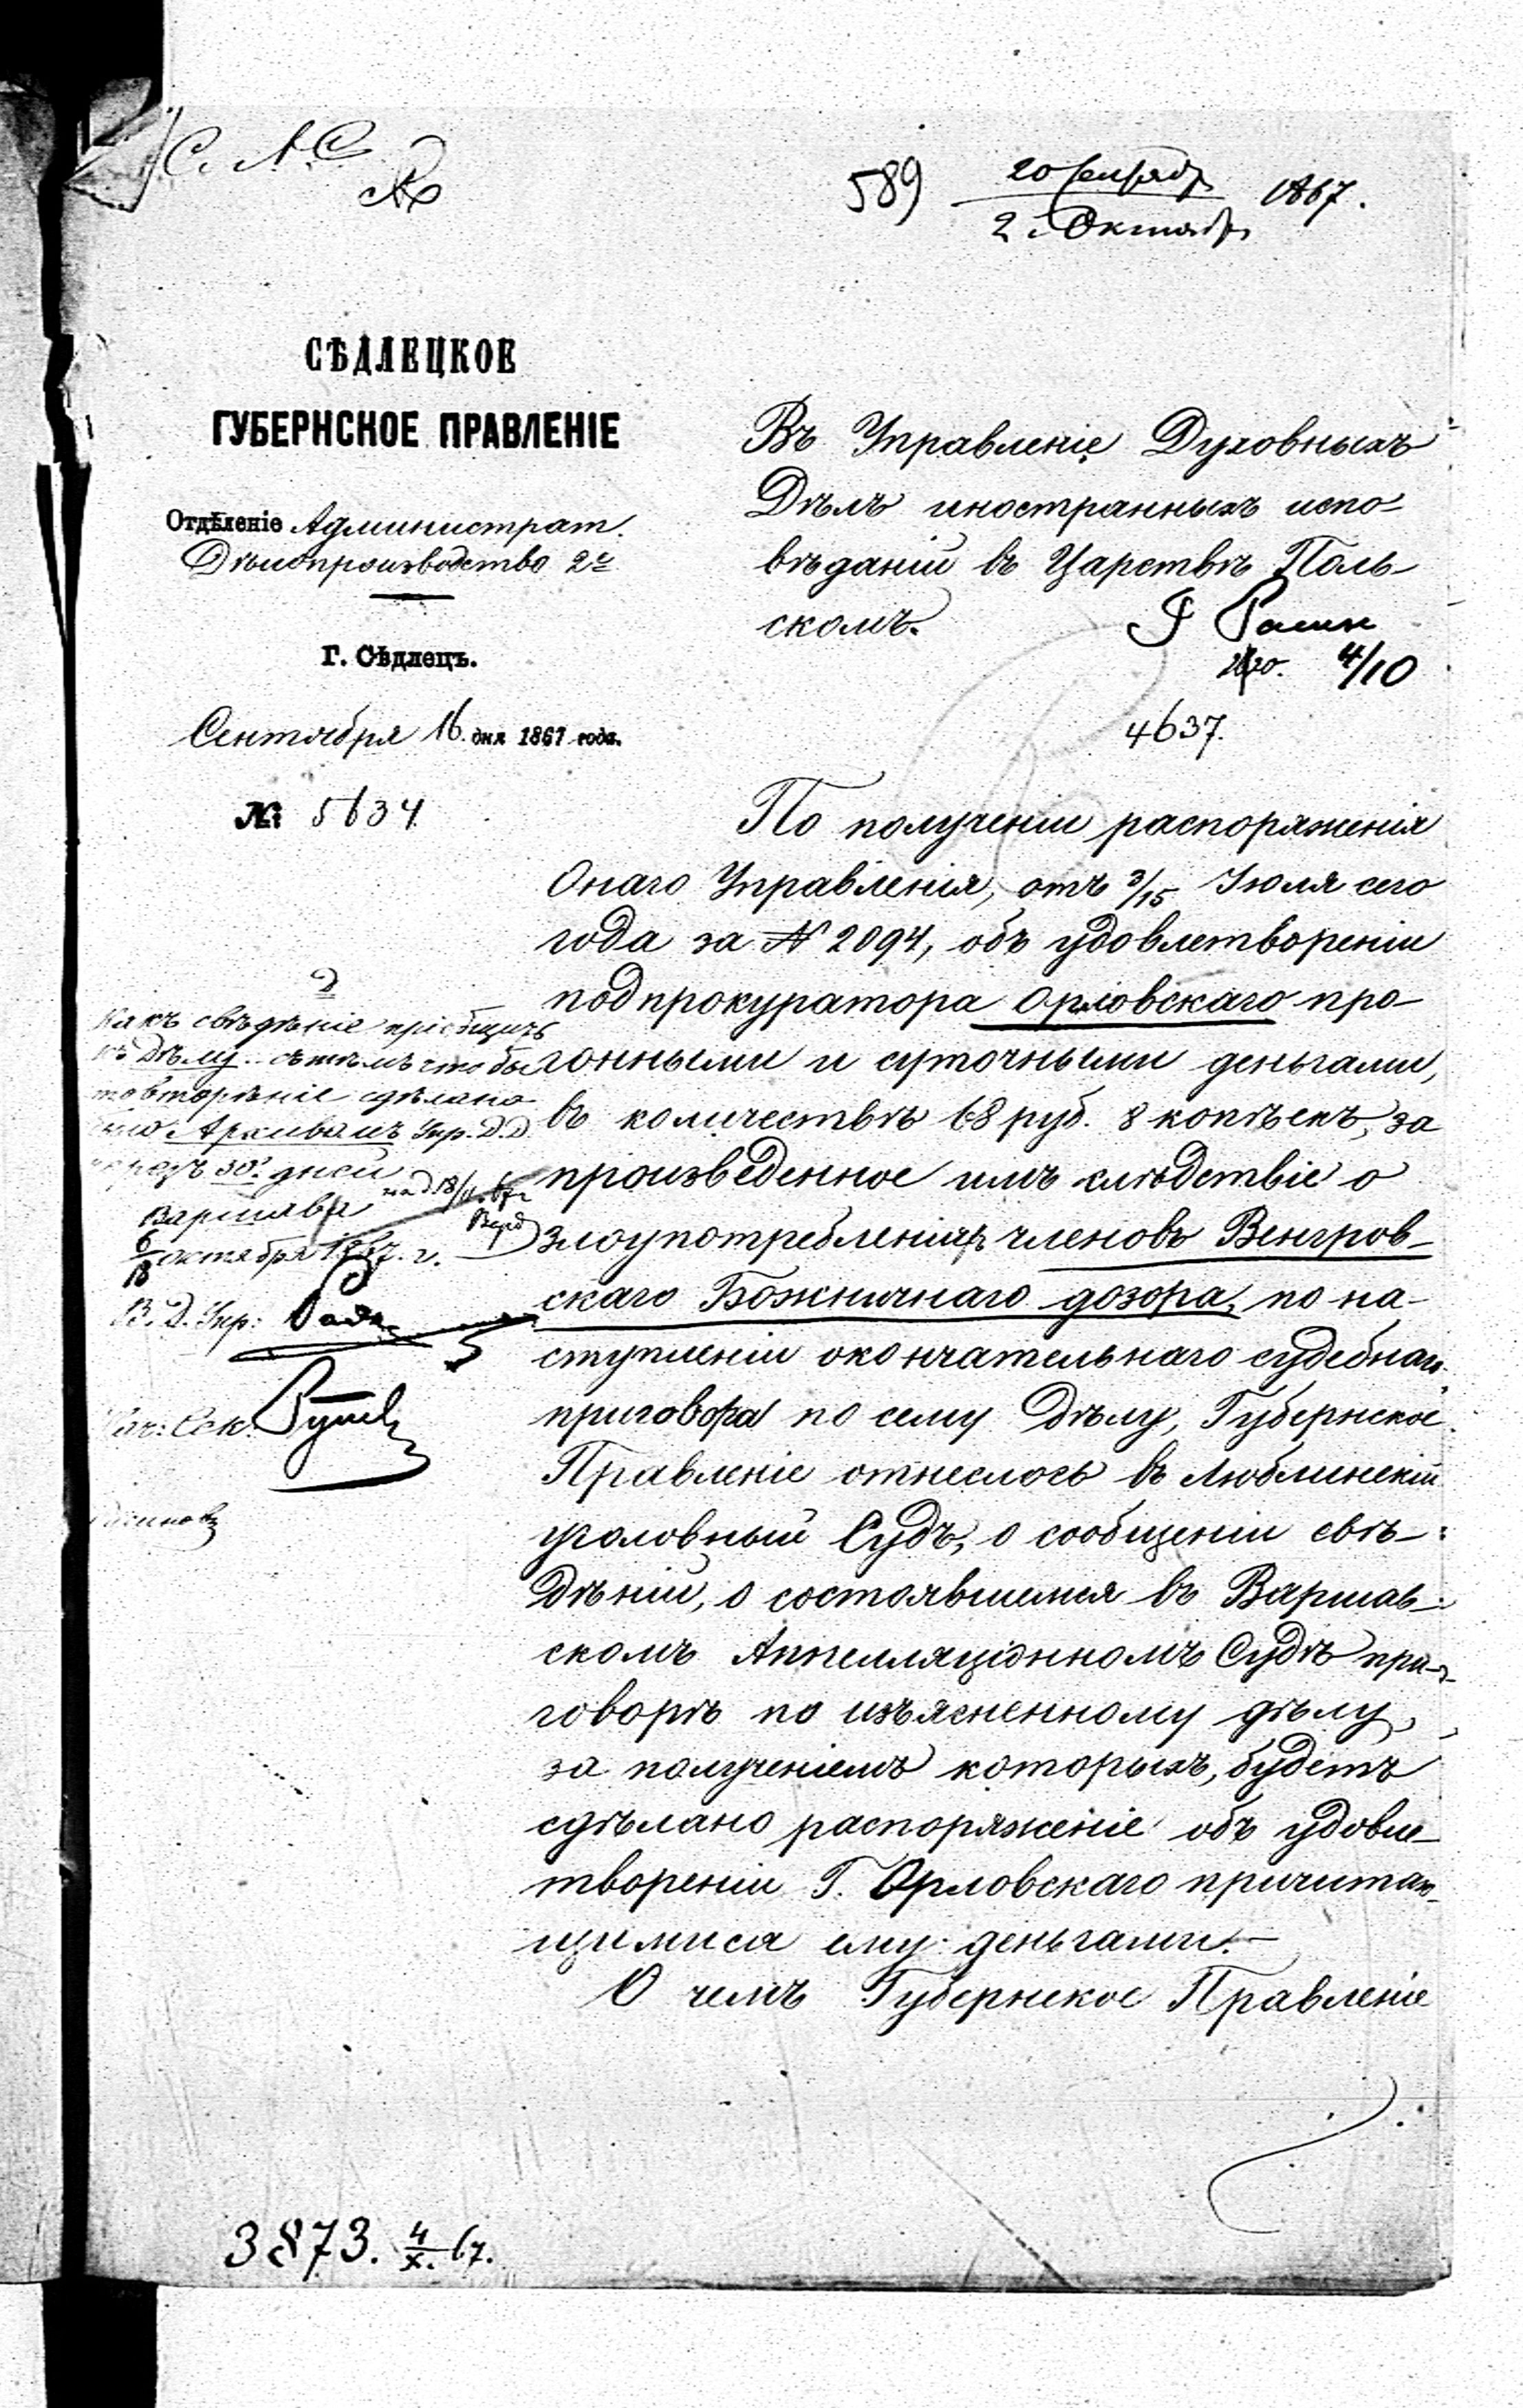 589 20 Сентябр 1867.
2 Октябр
СѢДЛЕЦКОЕ
ГУБЕРНСКОЕ ПРАВЛЕНІЕ
Отдѣленіе Администрат.
Дѣлопроизводство 2е
Г. Сѣдлецъ.
Сентября 16 дня 1867 года.
№ 5634
Въ Управленіе Духовныхъ
Дѣлъ иностранныхъ испо-
вѣданій въ Царствѣ Поль-
скомъ.
4/10
4637.
По полученіи распоряженія
Онаго Управленія, отъ 3/15 Іюля сего
года за № 2094, объ удовлетвореніи
подпрокуратора Орловскаго про-
гонными и суточными деньгами,
въ количествѣ 68 руб. 8 копѣекъ, за
произведенное имъ слѣдствіе о
злоупотребленіяхъ членовъ Венгров-
скаго Божничнаго дозора, по на-
ступленіи окончательнаго судебнаго
приговора по сему Дѣлу, Губернское
Правленіе отнеслось въ Люблинскій
уголовный Судъ, о сообщеніи свѣ-
дѣній, о состоявшемся въ Варшав-
скомъ Аппелляціонномъ Судѣ при-
говорѣ по изъясненному дѣлу,
за полученіемъ которыхъ, будетъ
сдѣлано распоряженіе объ удовле-
твореніи Г. Орловскаго причитаю-
щимися ему деньгами.-
О чемъ Губернское Правленіе
Какъ свѣдѣніе пріобщить
къ Дѣлу. съ тѣмъ чтобы
повтореніе сдѣлано
было Архивомъ Упр. Д. Д.
черезъ 30 дней
Варшава
6/18 октября 1867 г.
В. Д. Упр:
Нач: Сек:
3873. 4/X. 67.